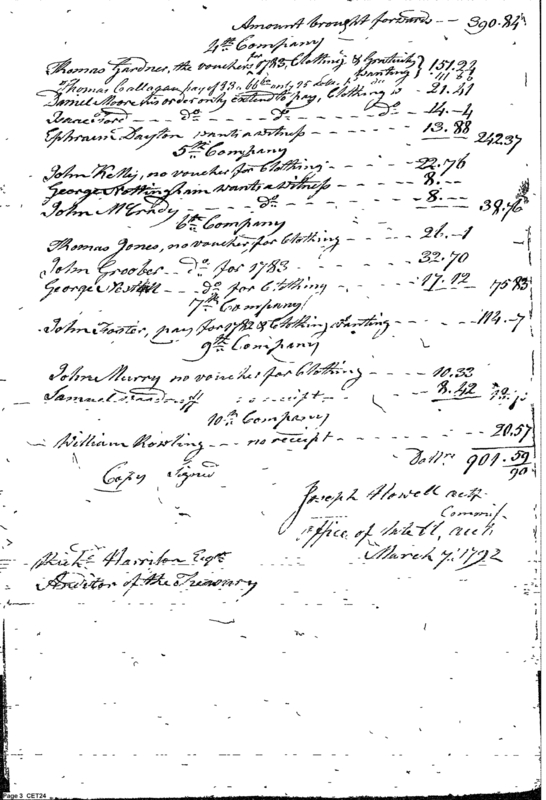 Amount brought forward — 390.84
4th Company
Thomas Gardner, the vouchers for 1783, Clothing & Gratuity wanting } 151.22
Thomas Callagan pay of 23 only 25 41 66
Daniel Moore his order only extend to pay, Clothing 21.41
Isaac Ford do do do 14.-4
Ephraim Dayton wants a witness 13.88 242.37
5th Company
John Kelly, no voucher for Clothing 22.76
George Nottingham wants a witness 8.—
John McCrady do 8.— 38.76
6th Company
Thomas Jones, no voucher for Clothing 26.-1
John Groober do for 1783 32.70
George do for Clothing 17.12 75.83
7th Company
John Foster, pay for 1782 & Clothing wanting 114.-7
9th Company
John Murry no voucher for Clothing 10.33
Samuel no receipt 8.42
10th Company
William Rowling no receipt 20.57
Dollrs 901.59/90
Copy Signed
Joseph Howell actg
Commisr
Office of
March 7, 1792
Richd Harrison Esqr
Auditor of the Treasury
Page 3 CET24